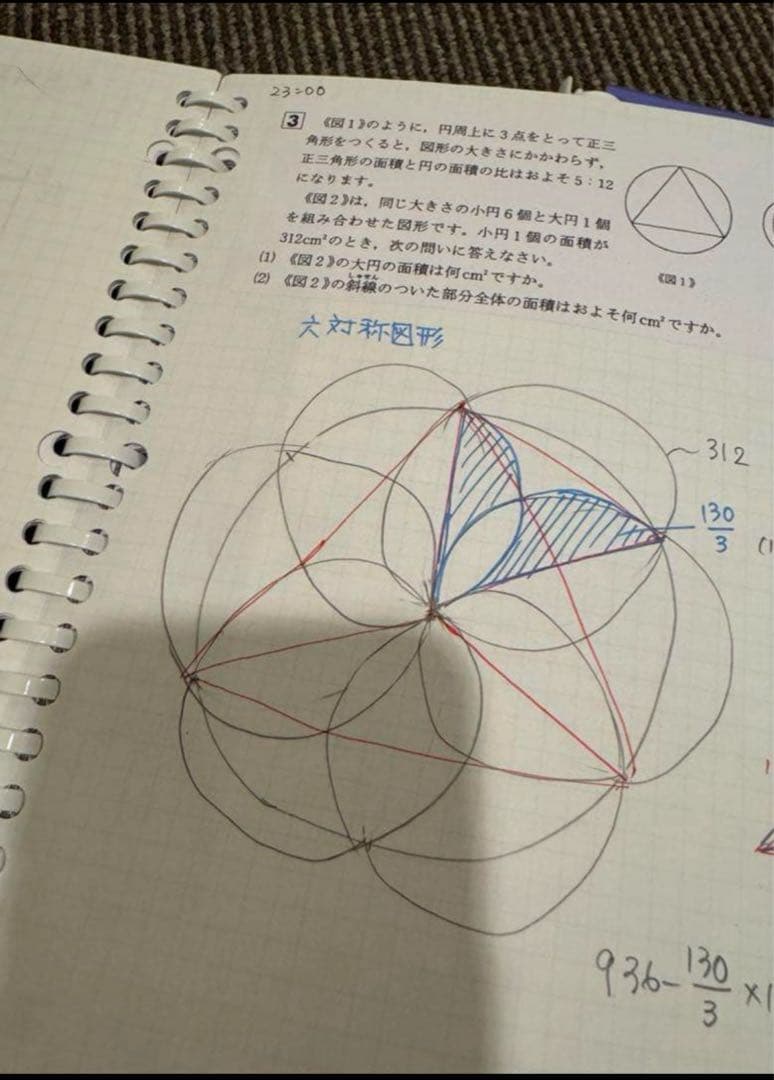 23:00
3 《図1》のように,円周上に3点をとって正三
角形をつくると,図形の大きさにかかわらず,
正三角形の面積と円の面積の比はおよそ5:12
になります。
《図2》は,同じ大きさの小円6個と大円1個
を組み合わせた図形です。小円1個の面積が
312cm²のとき,次の問いに答えなさい。
(1) 《図2》の大円の面積は何cm²ですか。
(2) 《図2》の斜線のついた部分全体の面積はおよそ何cm²ですか。
しゃせん
《図1》
六対称図形
312
130/3
(1
936-130/3×1